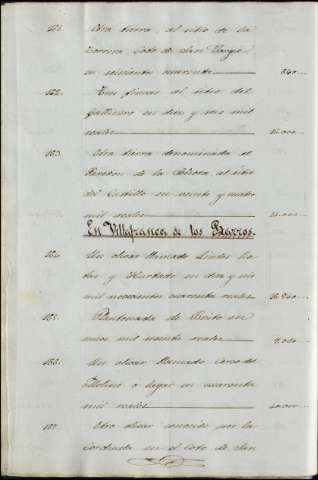 151. Otra tierra al sitio de la
Coto de San Jorge
en seiscientos cuarenta 640
152. Tres fincas al sitio del
Gallinero en diez y seis mil
reales 16.000
153. Otra tierra denominada el
Rincon de la al sitio
del Castillo en veinte y cuatro
mil reales 24.000
En Villafranca de los Barros.
154. Un olivar llamado Lindes
y Hurtado en diez y seis
mil novecientos cuarenta reales 16.940
155. de Benito en
mil reales
156. Un olivar llamado Cerca del
Molino o lagar en cuarenta
mil reales 40.000
157. Otro olivar conocido por la
en el Coto de San